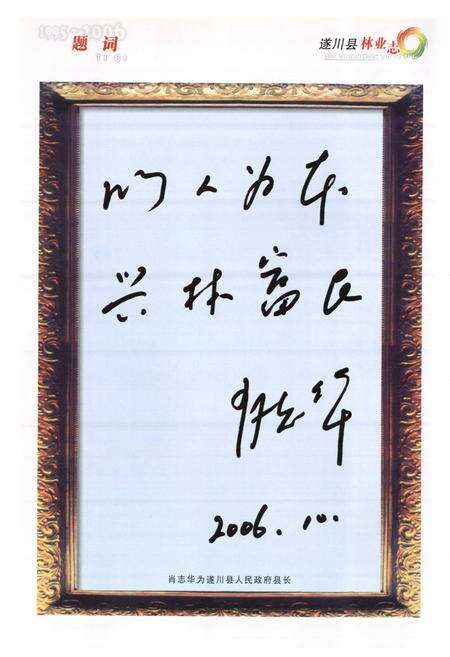 1995-2006
题 词
遂川县林业志
以人为本
兴林富民
肖志华
2006.10.
肖志华为遂川县人民政府县长